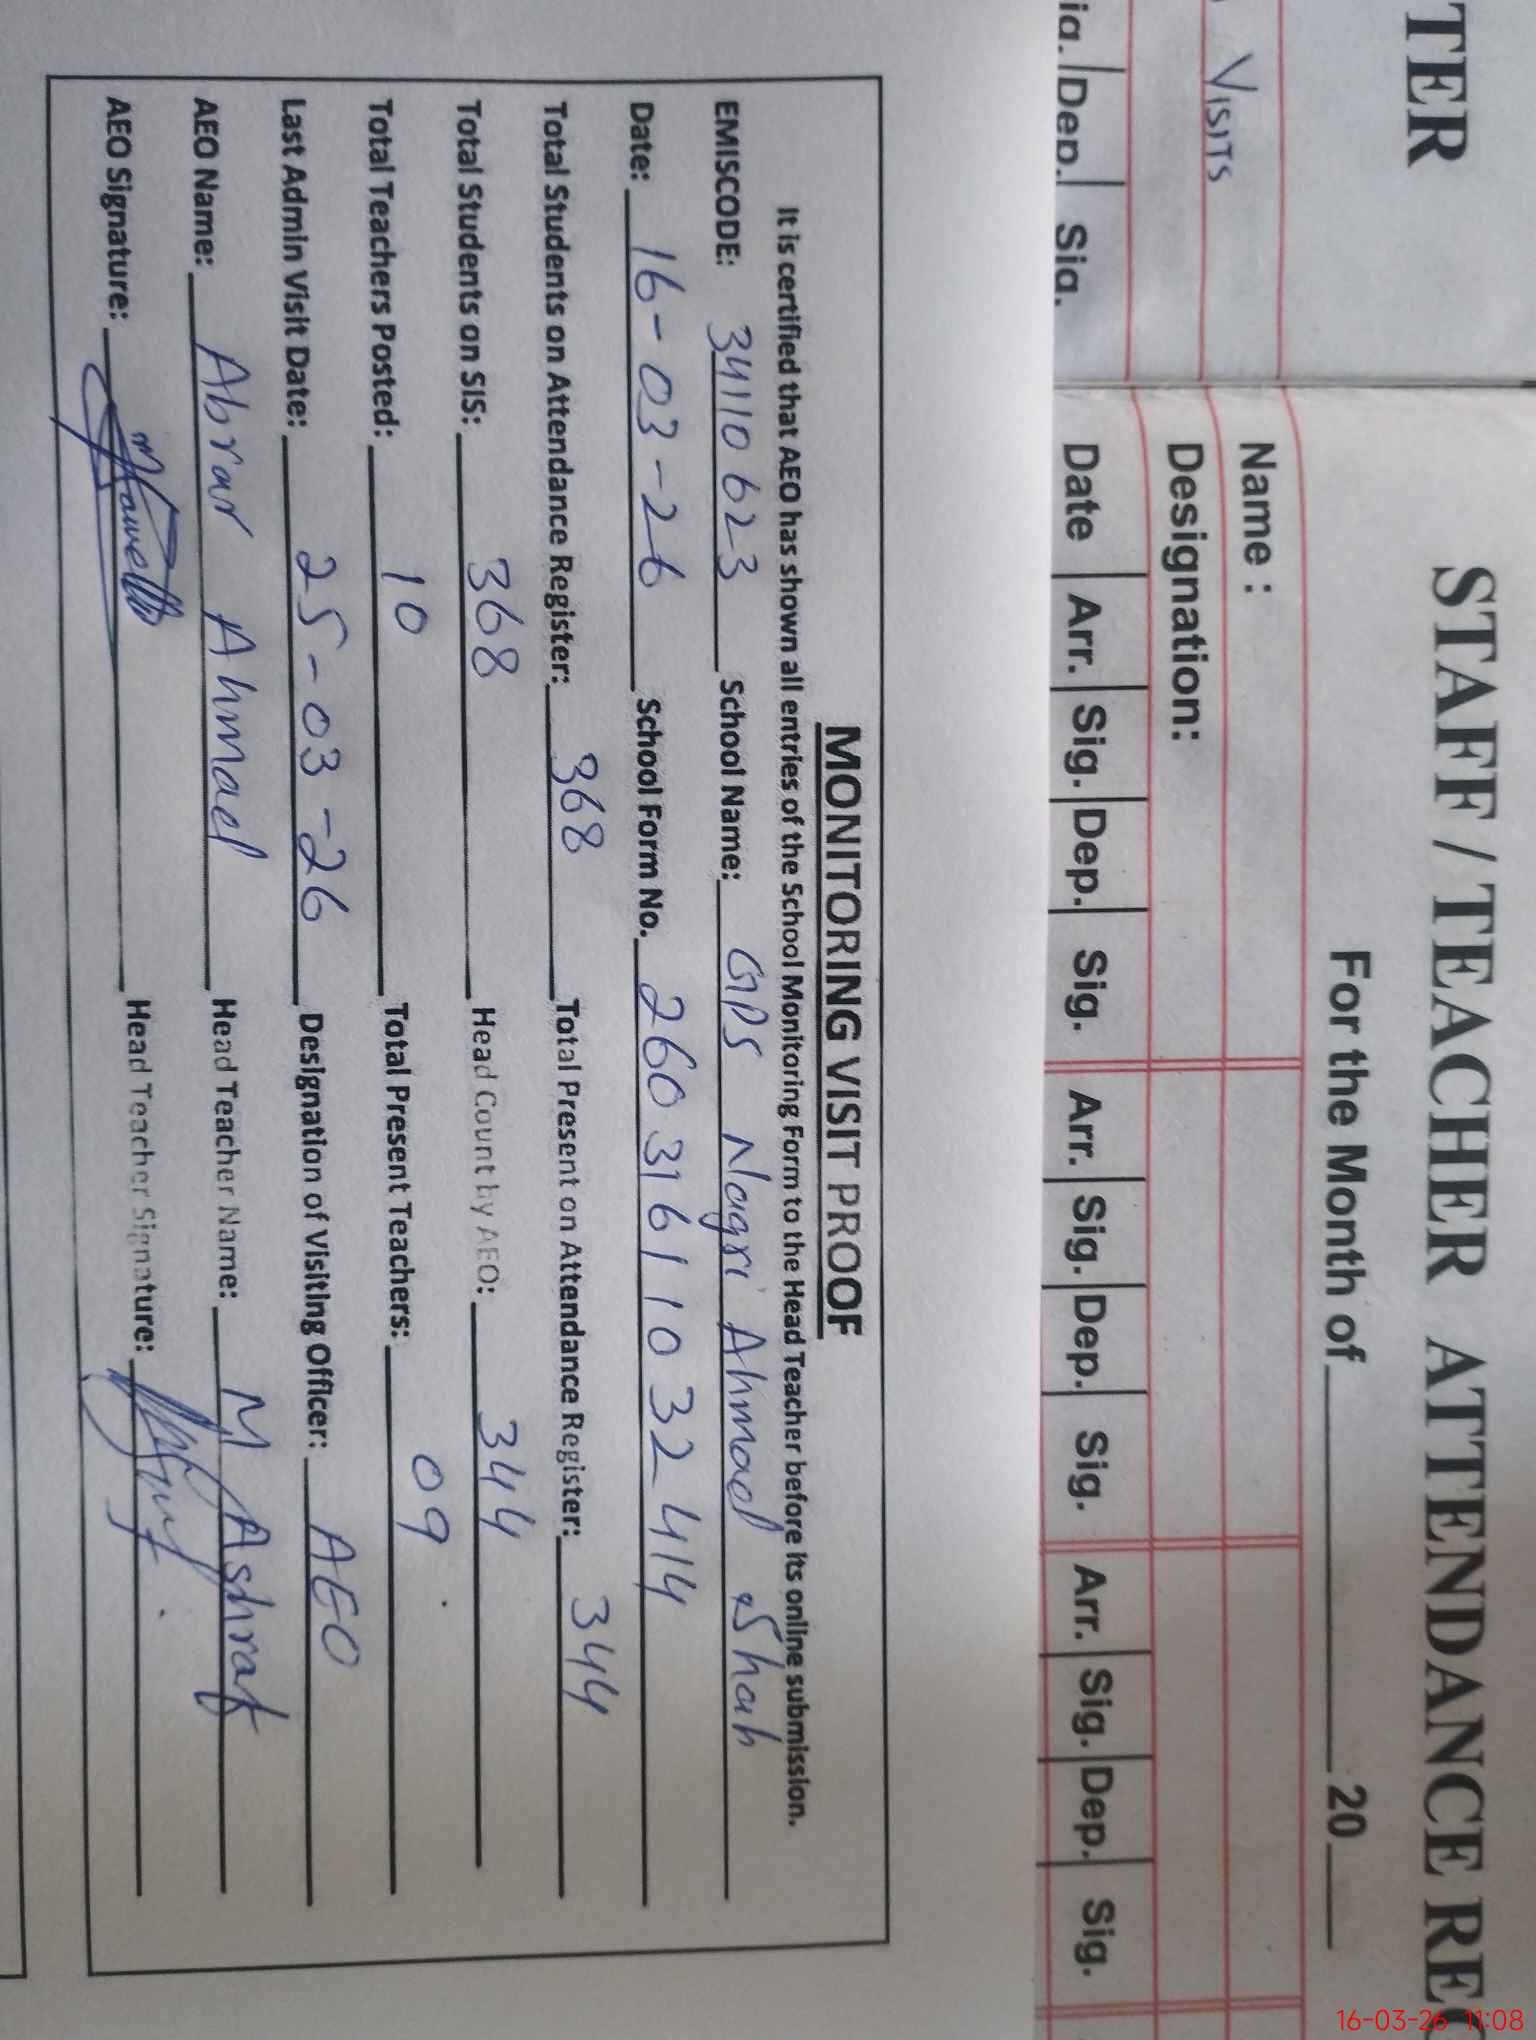 TER
STAFF / TEACHER ATTENDANCE REC
For the Month of 20
VISITS
Name :
Designation:
ig. Dep. Sig.
Date Arr. Sig. Dep. Sig. Arr. Sig. Dep. Sig. Arr. Sig. Dep. Sig.
MONITORING VISIT PROOF
It is certified that AEO has shown all entries of the School Monitoring Form to the Head Teacher before its online submission.
EMISCODE: 34110623 School Name: GPS Nagri Ahmad Shah
Date: 16-03-26 School Form No. 2603161032414
Total Students on Attendance Register: 368 Total Present on Attendance Register: 344
Total Students on SIS: 368 Head Count by AEO: 344
Total Teachers Posted: 10 Total Present Teachers: 09
Last Admin Visit Date: 25-03-26 Designation of Visiting Officer: AEO
AEO Name: Abrar Ahmad Head Teacher Name: M Ashraf
AEO Signature: Head Teacher Signature:
16-03-26 11:08